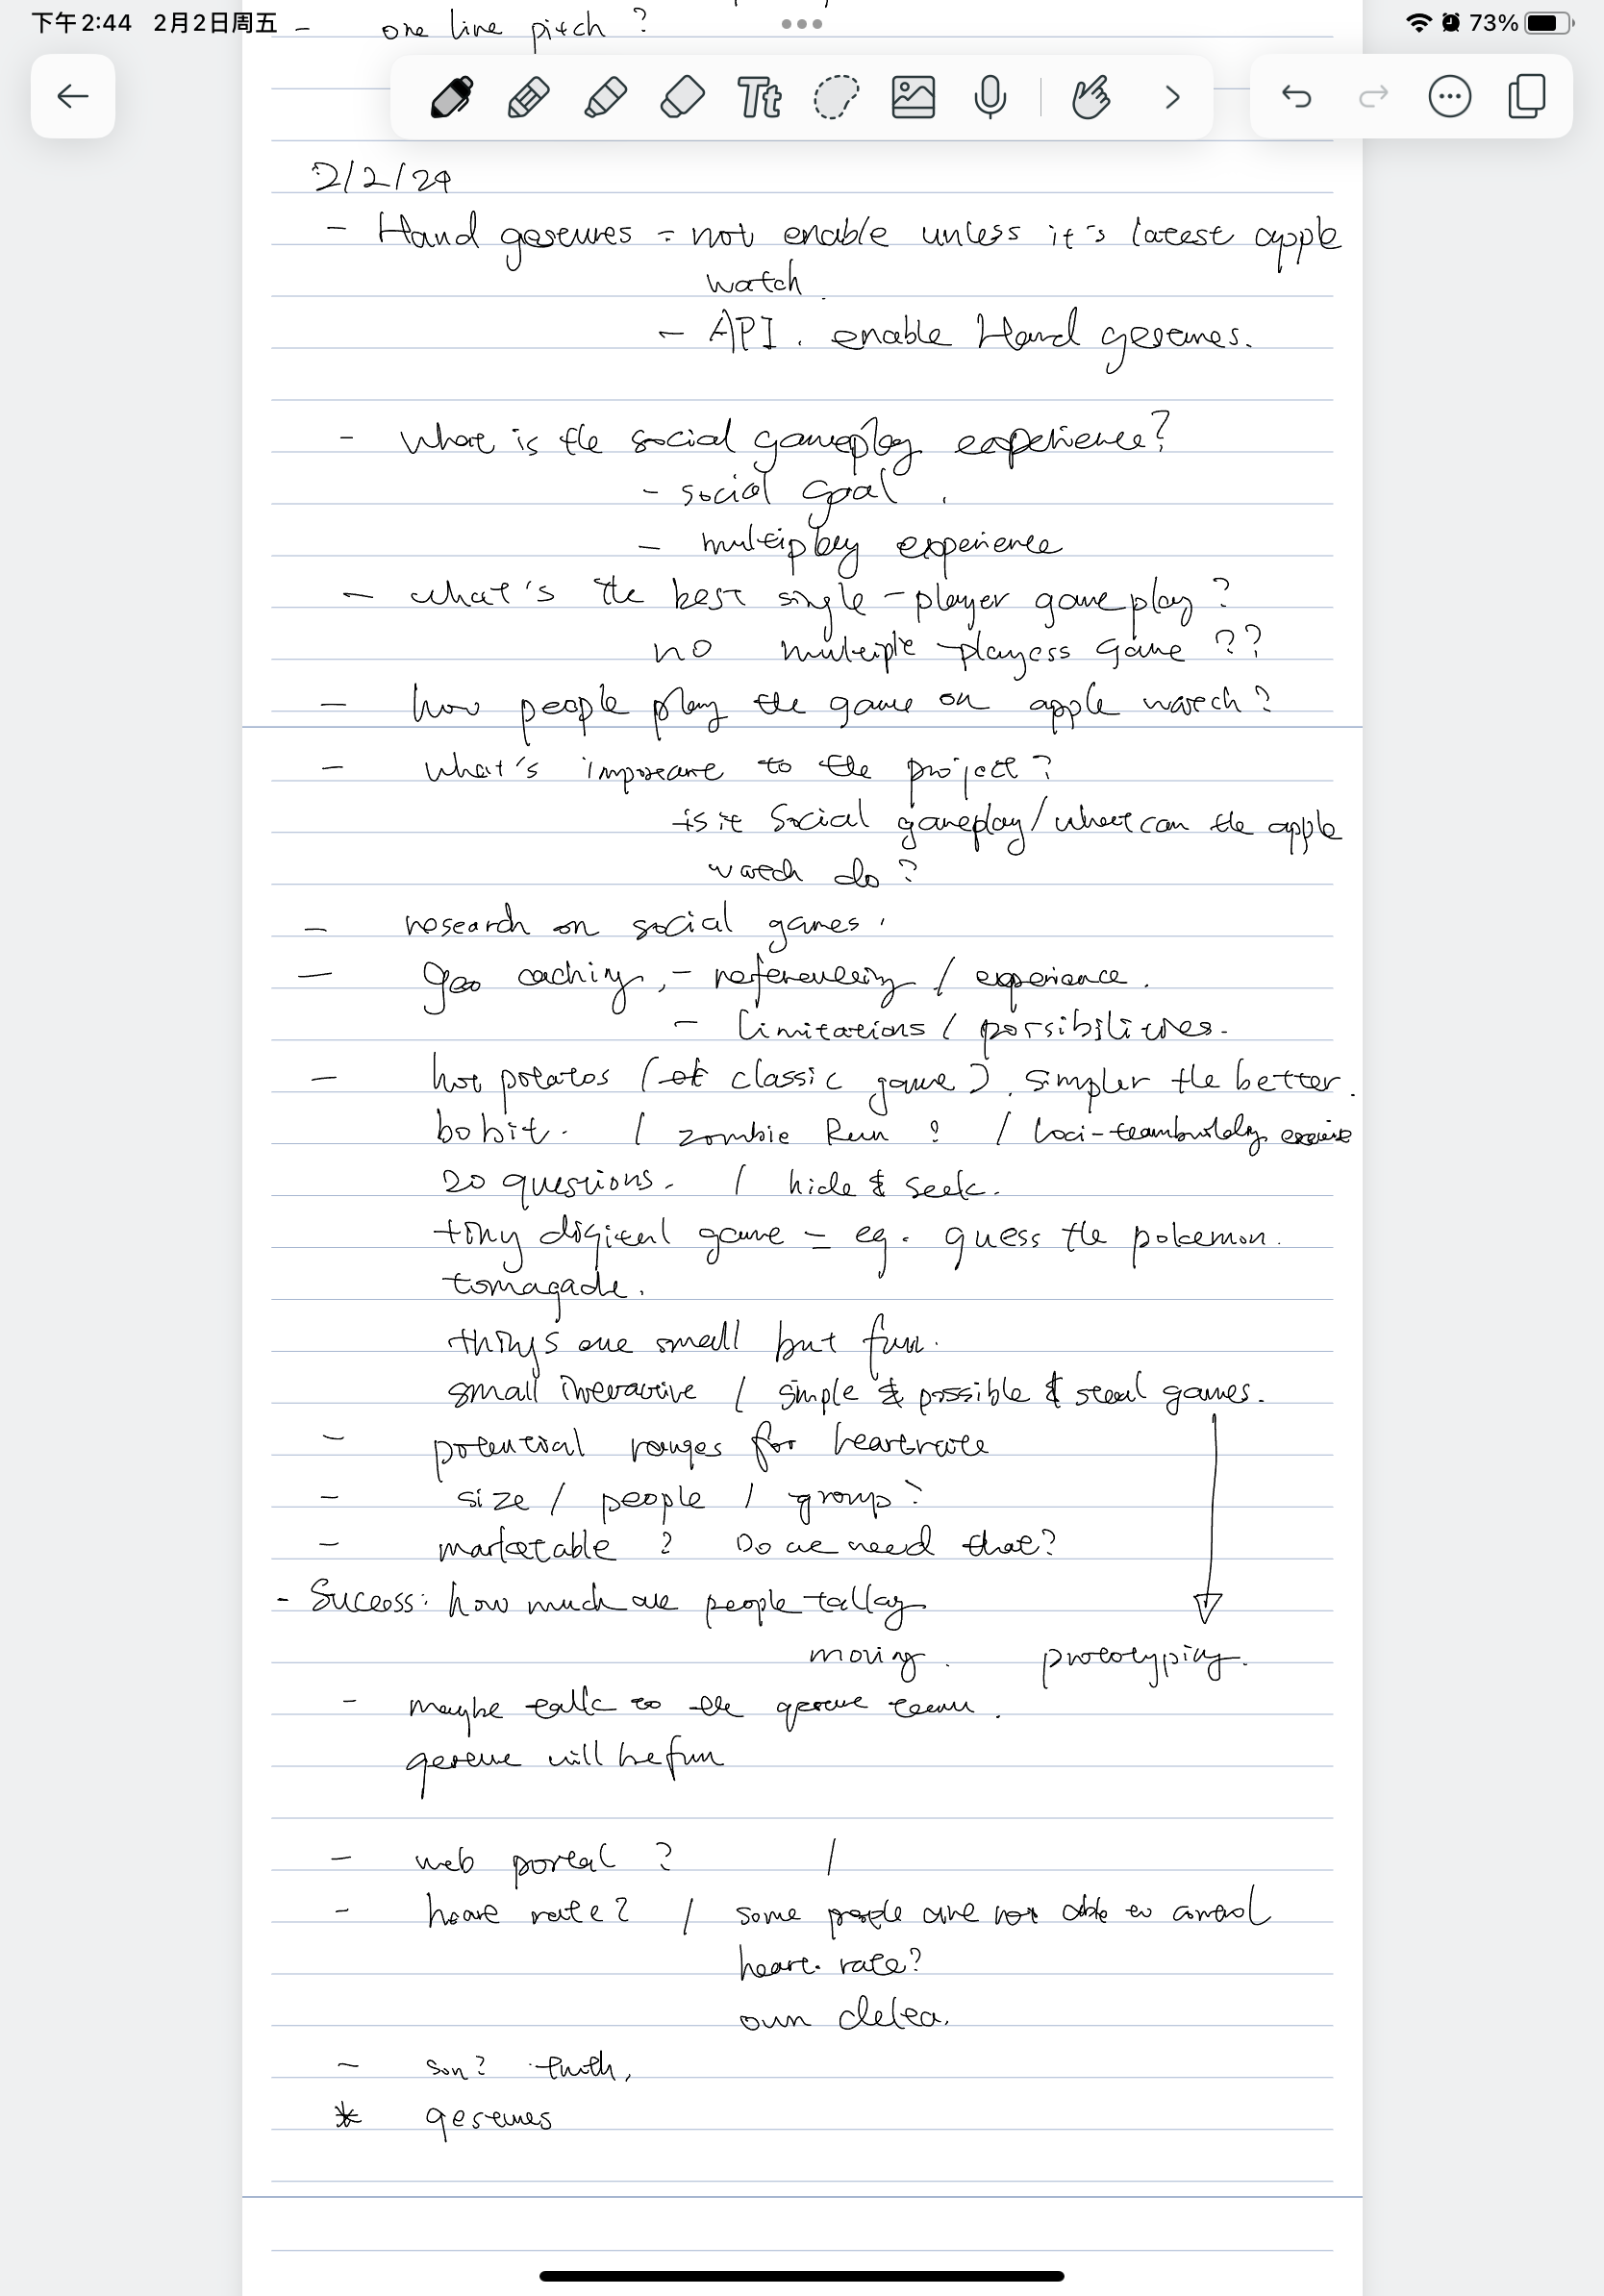 下午2:44 2月2日周五
73%
- one line pitch ?
Tt
2/2/24
- Hand gestures = not enable unless it's latest apple
watch.
- API. enable Hand gestures.
- What is the social gameplay experience?
- social goal.
- multiplay experience
- what's the best single-player gameplay?
no multiple-players game ??
- how people play the game on apple watch?
- what's important to the project?
is it Social gameplay/what can the apple
watch do?
- research on social games.
- geo caching, - referencing / experience.
- limitations / possibilities.
- hot potatos ( classic game). simpler the better.
bobit. / zombie Run ? / loci-teambuildy exercise
20 questions. / hide & seek.
tiny digital game = eg. guess the pokemon.
tomagade.
things are small but fun.
small interactive / simple & possible & games.
- potential ranges for heartrate
- size / people / group?
- marketable ? Do we need that?
- Sucess: how much are people talking
moving. prototyping.
- maybe talk to the gesture team.
gesture will be fun
- web portal ? /
- heart rate? / some people are not able to control
heart. rate?
own
- truth,
* gestures